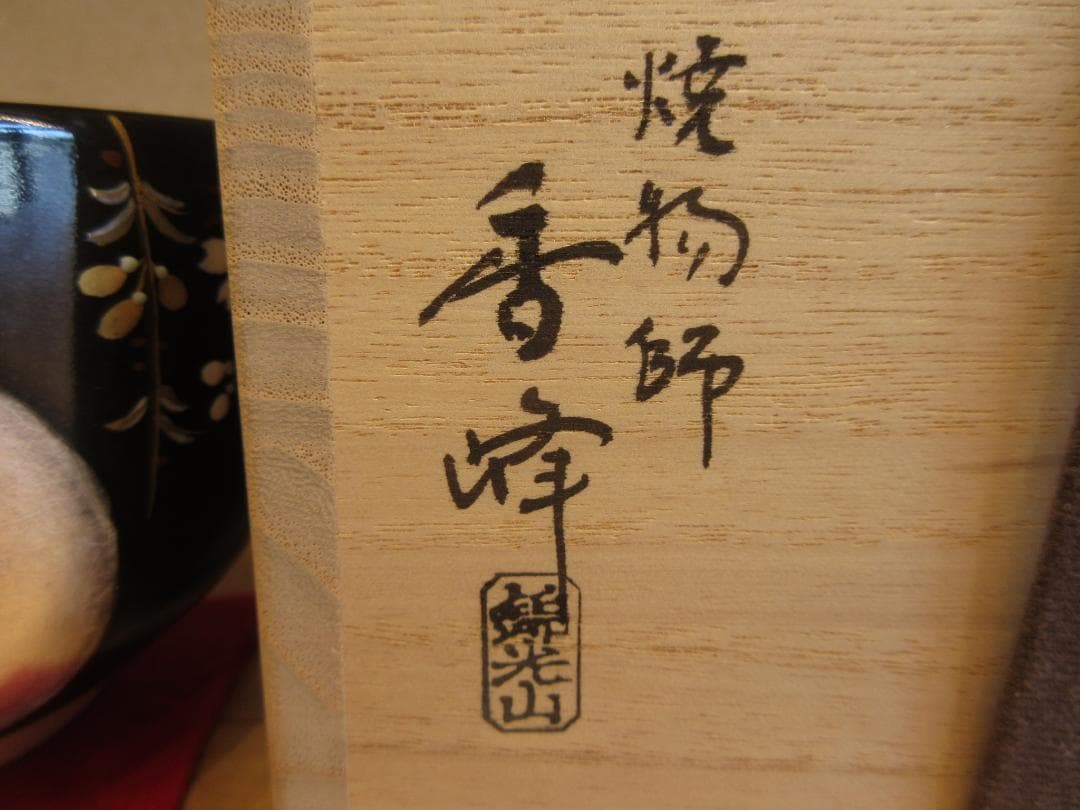 焼物師
香峰
錦光山